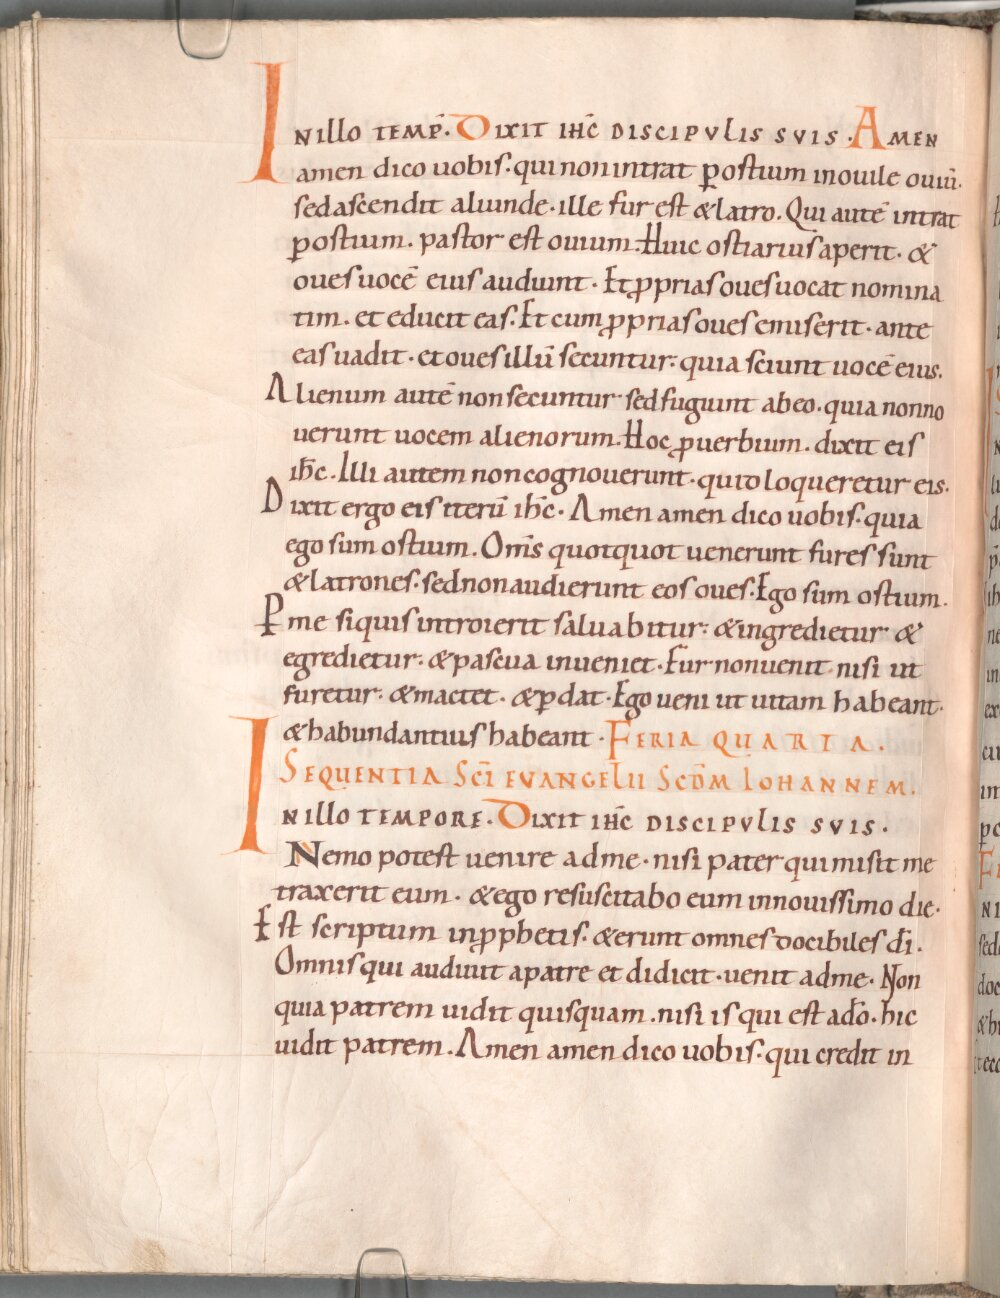 INILLO TEMP̄. DIXIT IH̄C DISCIPVLIS SVIS. AMEN
amen dico uobis. qui non intrat ꝑ ostium in ouile ouiū.
sed ascendit aliunde. ille fur est & latro. Qui autē intrat
ꝑ ostium. pastor est ouium. Huic ostiarius aperit. &
oues uocē eius audiunt. Et ꝓprias oues uocat nomina
tim. et educit eas. Et cum ꝓprias oues emiserit. ante
eas uadit. et oues illū secuntur: quia sciunt uocē eius.
Alienum autē non secuntur sed fugiunt ab eo. quia non no
uerunt uocem alienorum. Hoc ꝓuerbium. dixit eis
ih̄c. Illi autem non cognouerunt. quid loqueretur eis.
Dixit ergo eis iterū ih̄c. Amen amen dico uobis. quia
ego sum ostium. Om̄s quotquot uenerunt fures sunt
& latrones. sed non audierunt eos oues. Ego sum ostium.
Ꝑ me si quis introierit saluabitur: & ingredietur &
egredietur: & pascua inueniet. Fur non uenit nisi ut
furetur: & mactet. & ꝑdat. Ego ueni ut uitam habeant.
& habundantius habeant. FERIA QUARTA.
SEQUENTIA SC̄I EVANGELII SCD̄M IOHANNEM.
INILLO TEMPORE. DIXIT IH̄C DISCIPVLIS SVIS.
Nemo potest uenire ad me. nisi pater qui misit me
traxerit eum. & ego resuscitabo eum in nouissimo die.
Est scriptum in ꝓphetis. & erunt omnes docibiles dī.
Omnis qui audiuit a patre et didicit. uenit ad me. Non
quia patrem uidit quisquam. nisi is qui est a dō. hic
uidit patrem. Amen amen dico uobis. qui credit in